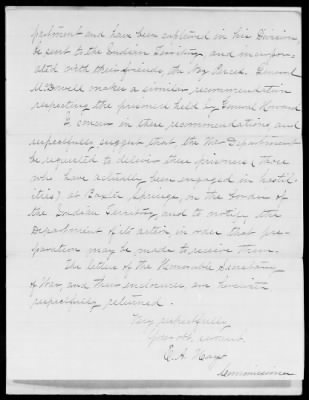 partment and have been captured in his Division,
be sent to the Indian Territory and incorpor-
ated with their friends, the Nez Perces. General
McDowell makes a similar recommendation
respecting the prisoners held by General Howard.
I concur in these recommendations, and
respectfully suggest that the War Department
be requested to deliver these prisoners, (those
who have actually been engaged in hostil-
ities) at Baxter Springs, on the border of
the Indian Territory, and to notify this
Department of its action in order that pre-
paration may be made to receive them.
The letter of the Honorable Secretary
of War, and their enclosures are herewith
respectfully returned.
Very respectfully,
Your obt. servant,
E. A. Hayt
Commissioner